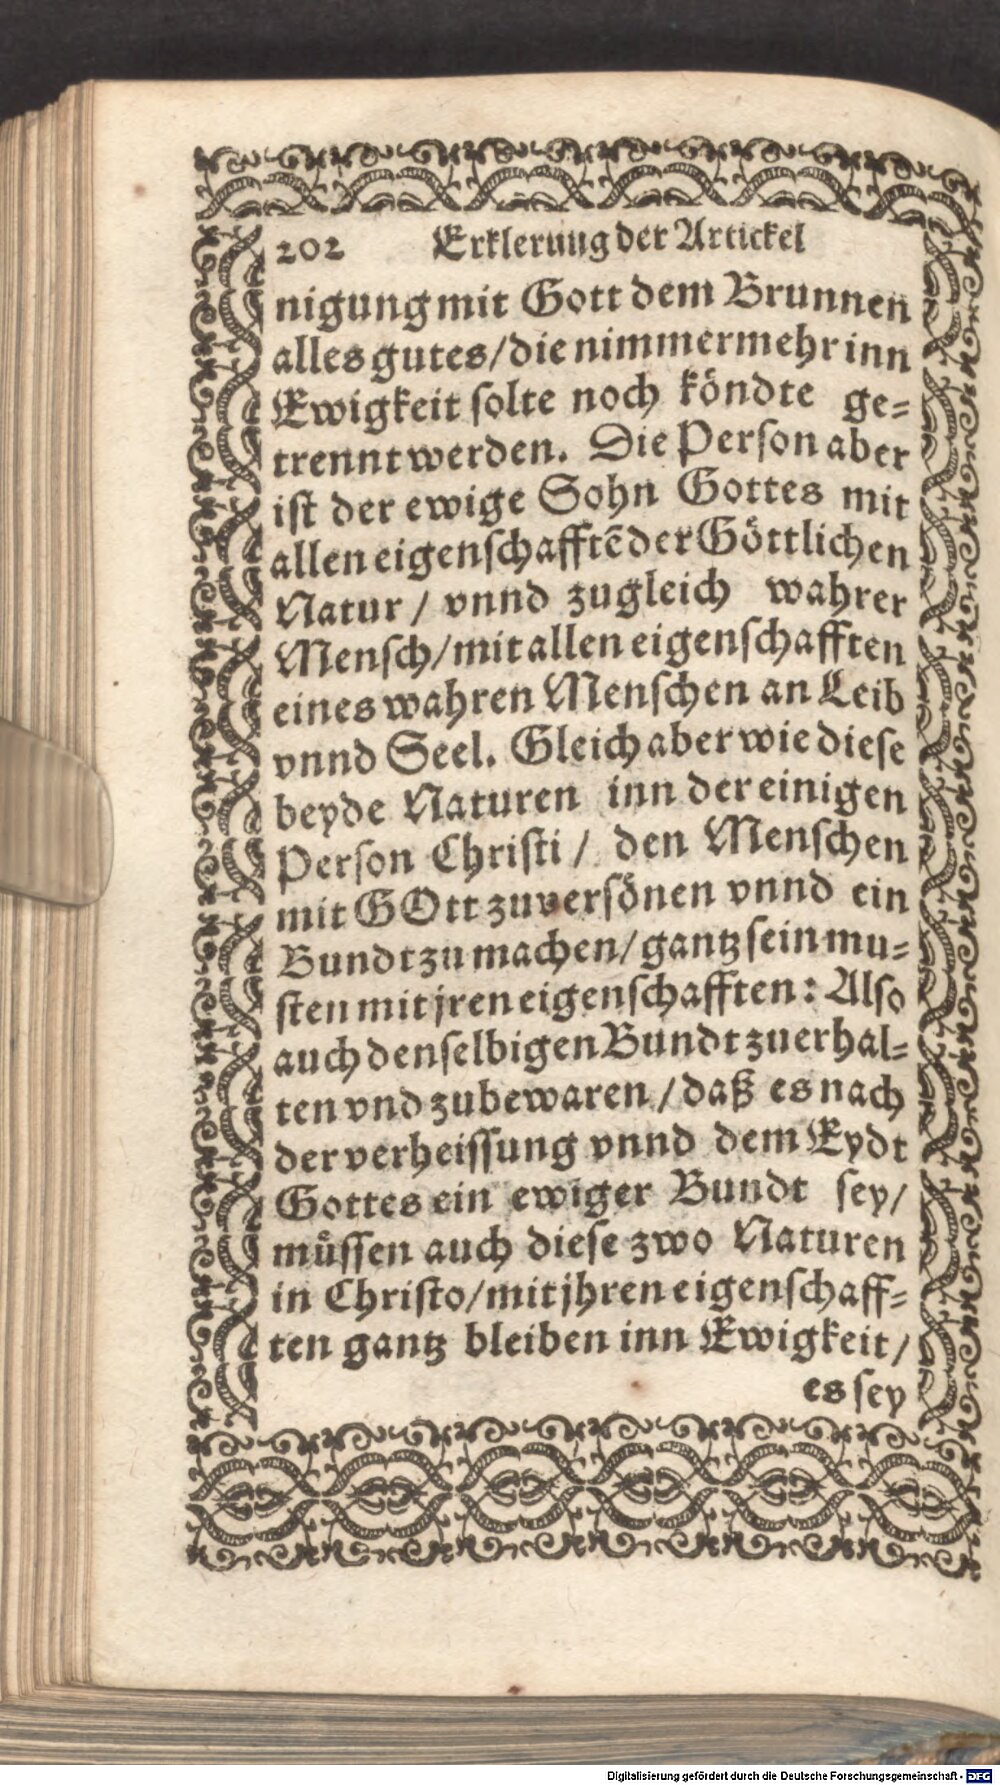 202 Erklerung der Artickel
nigung mit Gott dem Brunnen
alles gutes/die nimmermehr inn
Ewigkeit solte noch köndte ge=
trennt werden. Die Person aber
ist der ewige Sohn Gottes mit
allen eigenschafftẽ der Göttlichen
Natur / vnnd zugleich wahrer
Mensch/mit allen eigenschafften
eines wahren Menschen an Leib
vnnd Seel. Gleich aber wie diese
beyde Naturen inn der einigen
Person Christi / den Menschen
mit GOtt zuversönen vnnd ein
Bundt zu machen/gantz sein mu=
sten mit jren eigenschafften: Also
auch denselbigen Bundt zuerhal=
ten vnd zubewaren /daß es nach
der verheissung vnnd dem Eydt
Gottes ein ewiger Bundt sey/
müssen auch diese zwo Naturen
in Christo/mit jhren eigenschaff=
ten gantz bleiben inn Ewigkeit/
es sey
Digitalisierung gefördert durch die Deutsche Forschungsgemeinschaft - DFG